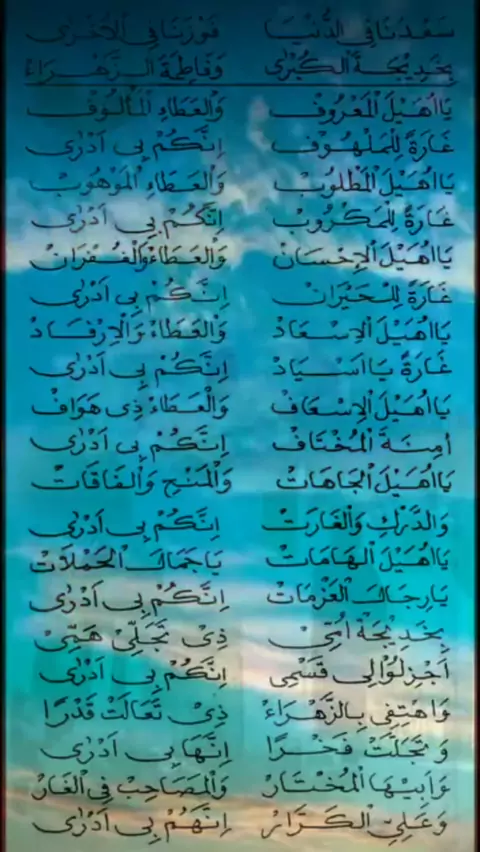 سَعْدُنَا فِي الدُّنْيَا فَوْزُنَا فِي الْأُخْرَى
بِخَدِيْجَةَ الْكُبْرَى وَفَاطِمَةَ الزَّهْرَاءْ
يَا اُهَيْلَ الْمَعْرُوْفْ وَالْعَطَاءِ الْمَأْلُوْفْ
غَارَةً لِلْمَلْهُوْفْ اِنَّكُمْ بِي اَدْرَى
يَا اُهَيْلَ الْمَطْلُوْبْ وَالْعَطَاءِ الْمَوْهُوْبْ
غَارَةً لِلْمَكْرُوْبْ اِنَّكُمْ بِي اَدْرَى
يَا اُهَيْلَ الْإِحْسَانْ وَالْعَطَاءْ وَالْغُفْرَانْ
غَارَةً لِلْحَيْرَانْ اِنَّكُمْ بِي اَدْرَى
يَا اُهَيْلَ الْاِسْعَادْ وَالْعَطَاءْ وَالْاِرْفَادْ
غَارَةً يَا اَسْيَادْ اِنَّكُمْ بِي اَدْرَى
يَا اُهَيْلَ الْاِسْعَافْ وَالْعَطَاءْ ذِى هَوَافْ
اَمِنَةَ الْمُخْتَافْ اِنَّكُمْ بِي اَدْرَى
يَا اُهَيْلَ الْجَاهَاتْ وَالْمَنْحِ وَالْفَاقَاتْ
وَالدَّرْكِ وَالْغَارَتْ اِنَّكُمْ بِي اَدْرَى
يَا اُهَيْلَ الْهَامَاتْ يَا جَمَالَ الْحَمْلَاتْ
يَا رِجَالَ الْعَزْمَاتْ اِنَّكُمْ بِي اَدْرَى
بِخَدِيْجَةْ اُمِّيْ ذِيْ تَجَلِّيْ هَمِّيْ
اَجْزِلُوْا لِي قَسْمِى اِنَّكُمْ بِي اَدْرَى
وَاهْتِفِي بِالزَّهْرَاءْ ذِيْ تَعَالَتْ قَدْرًا
وَتَجَلَتْ فَخْرًا اِنَّهَا بِي اَدْرَى
وَاَبِيْهَا الْمُخْتَارْ وَالْمُصَاحِبْ فِي الْغَارْ
وَعَلِيِّ الْكَرَّارْ اِنَّهُمْ بِي اَدْرَى